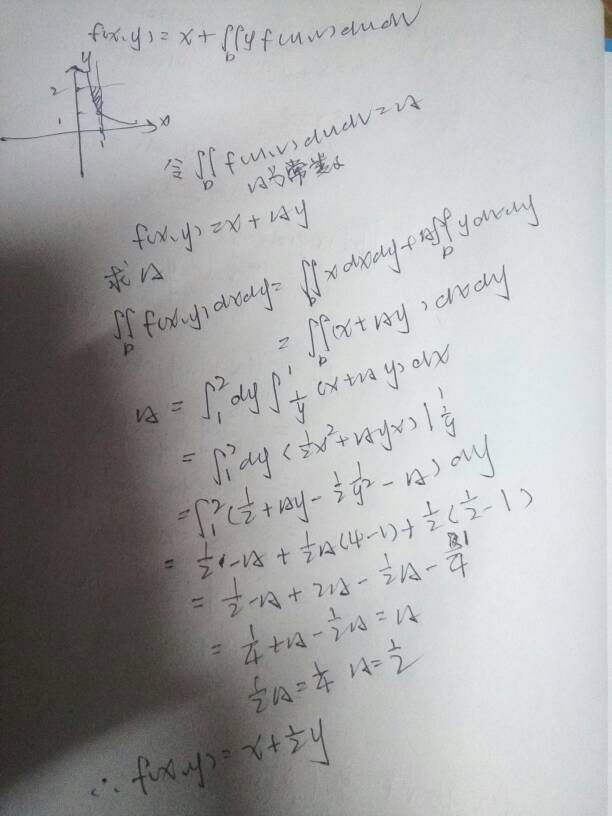 f(x,y)=x+∬_D y f(u,v)dudv
y
2
1
x
1
令∬_D f(u,v)dudv=A
A为常数
f(x,y)=x+Ay
求A
∬_D f(x,y)dxdy=∬_D xdxdy+A∬_D ydxdy
=∬_D(x+Ay)dxdy
A=∫_1^2 dy∫_{1/y}^1 (x+Ay)dx
=∫_1^2 dy(½x²+Ayx)|_{1/y}^1
=∫_1^2(½+Ay-½ 1/y²-A)dy
=½-A+½A(4-1)+½(½-1)
=½-A+2A-½A-1/4
=¼+A-½A=A
½A=¼ A=½
∴f(x,y)=x+½y